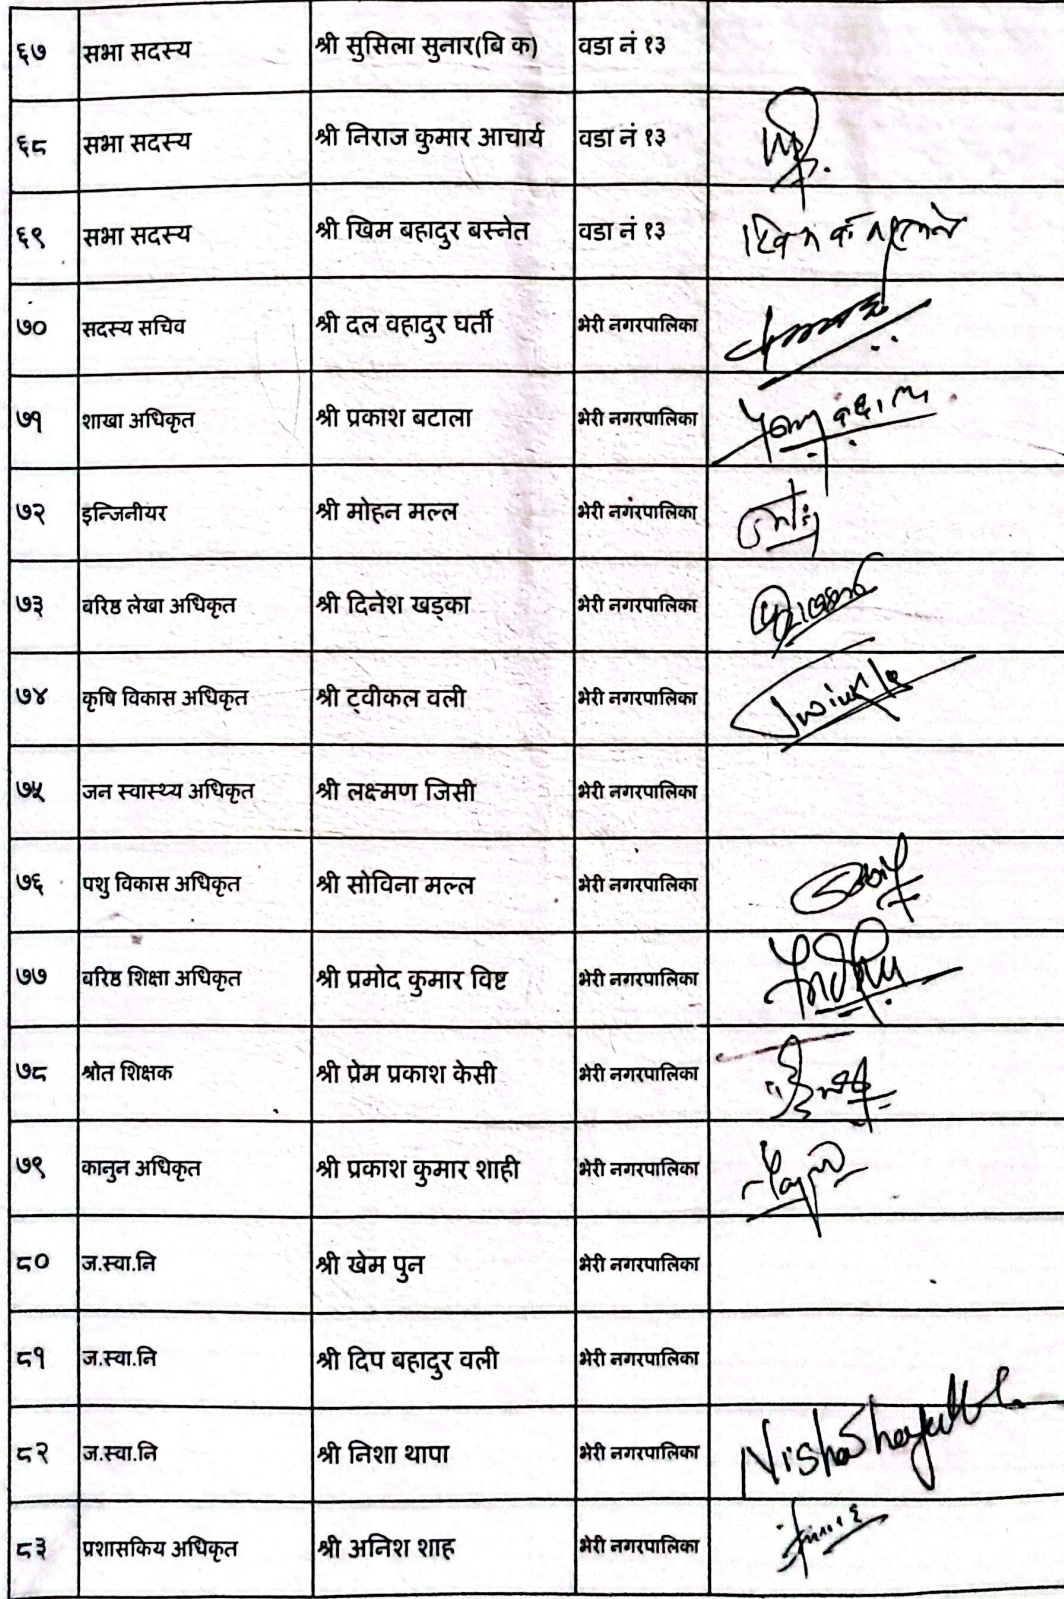 ६७ सभा सदस्य श्री सुसिला सुनार(बि क) वडा नं १३
६८ सभा सदस्य श्री निराज कुमार आचार्य वडा नं १३
६९ सभा सदस्य श्री खिम बहादुर बस्नेत वडा नं १३
७० सदस्य सचिव श्री दल वहादुर घर्ती भेरी नगरपालिका
७१ शाखा अधिकृत श्री प्रकाश बटाला भेरी नगरपालिका
७२ इन्जिनीयर श्री मोहन मल्ल भेरी नगरपालिका
७३ बरिष्ठ लेखा अधिकृत श्री दिनेश खड्का भेरी नगरपालिका
७४ कृषि विकास अधिकृत श्री ट्वीकल वली भेरी नगरपालिका Twinkle
७५ जन स्वास्थ्य अधिकृत श्री लक्ष्मण जिसी भेरी नगरपालिका
७६ पशु विकास अधिकृत श्री सोविना मल्ल भेरी नगरपालिका
७७ बरिष्ठ शिक्षा अधिकृत श्री प्रमोद कुमार विष्ट भेरी नगरपालिका
७८ श्रोत शिक्षक श्री प्रेम प्रकाश केसी भेरी नगरपालिका
७९ कानुन अधिकृत श्री प्रकाश कुमार शाही भेरी नगरपालिका
८० ज.स्वा.नि श्री खेम पुन भेरी नगरपालिका
८१ ज.स्वा.नि श्री दिप बहादुर वली भेरी नगरपालिका
८२ ज.स्वा.नि श्री निशा थापा भेरी नगरपालिका Nisha
८३ प्रशासकिय अधिकृत श्री अनिश शाह भेरी नगरपालिका